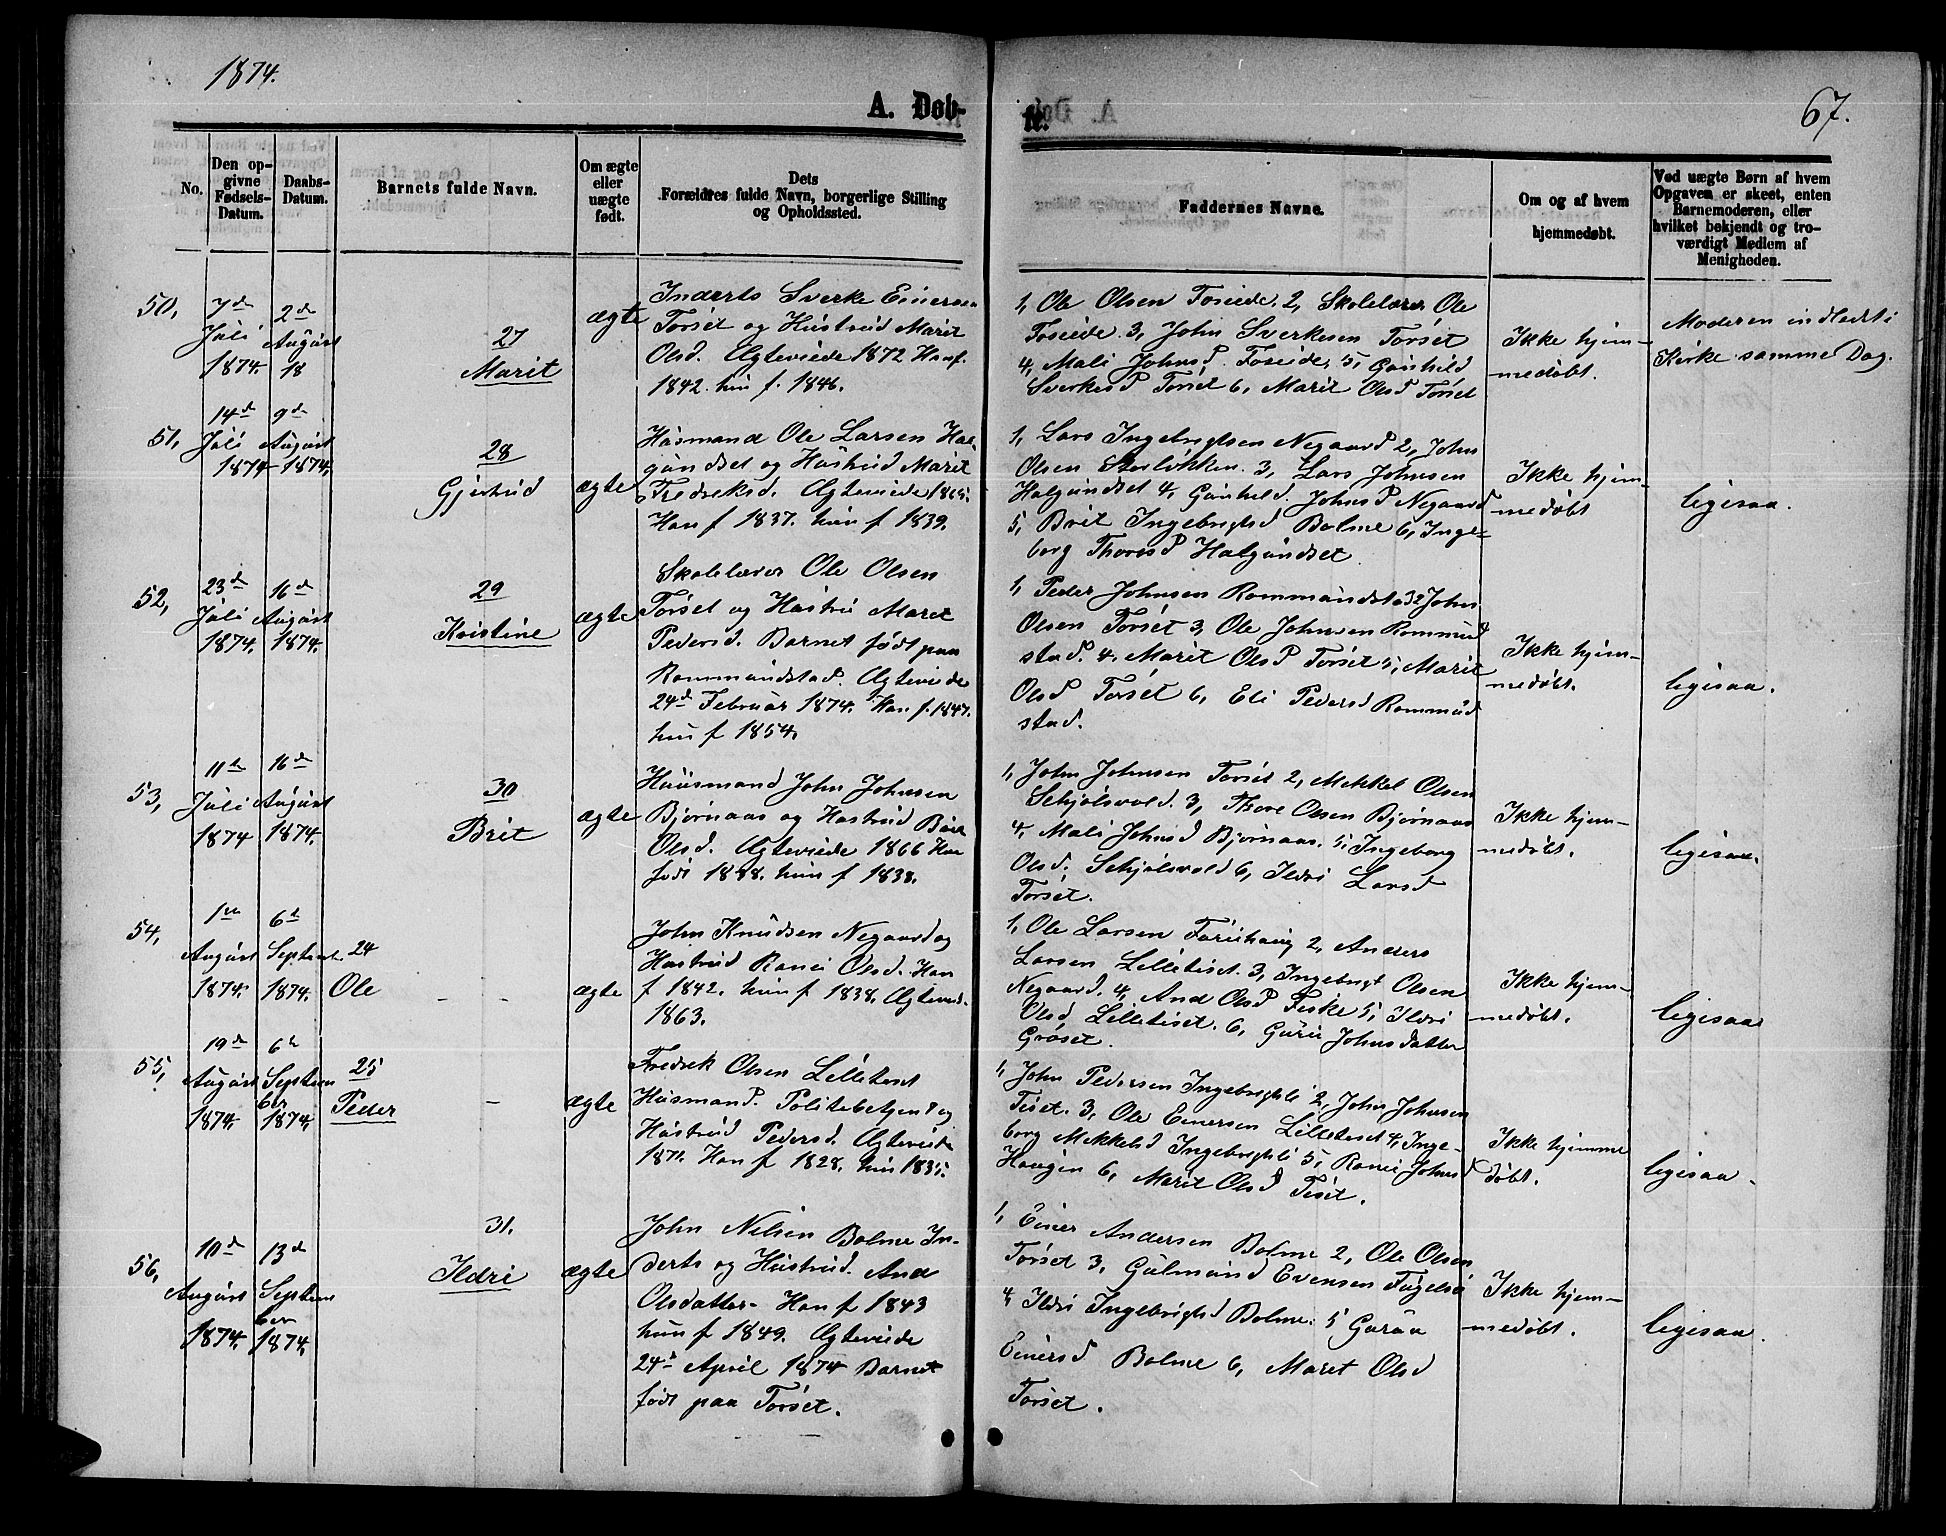 1874.
A. Døb-
te.
67.
No.
Den op-
givne
Fødsels-
Datum.
Daabs-
Datum.
Barnets fulde Navn.
Om ægte
eller
uægte
født.
Dets
Forældres fulde Navn, borgerlige Stilling
og Opholdssted.
Faddernes Navne.
Om og af hvem
hjemmedøbt.
Ved uægte Børn af hvem
Opgaven er skeet, enten
Barnemoderen, eller
hvilket bekjendt og tro-
værdigt Medlem af
Menigheden.
50,
7de
Juli
1874.
2de
August
18
27
Marit
ægte
Inderts Sverke Einersen
Torset og Hustrud Marit
Olsd. Ægteviede 1872 Han f.
1842. hun f. 1846.
1, Ole Olsen Foseide, 2, Skolelærer Ole
Foseide. 3, John Sverkesen Torset
4, Mali Johnsd. Foseide, 5, Gunhild
Sverkesd Torset 6, Marit Olsd Torset
Ikke hjem-
medøbt.
Moderen indledt i
Kirke samme Dag.
51,
14d
Juli
1874
9de
August
1874.
28
Gjertrud
ægte
Husmand Ole Larsen Hal-
gundset og Hustrud Marit
Fredreksd. Ægteviede 1865.
Han f 1837. hun f 1839.
1, Lars Ingebrigtsen Negaard 2, John
Olsen Storløkken. 3, Lars Johnsen
Halgundset 4, Gunhild Johnsd Negaard
5, Brit Ingebrigtsd Bolme 6, Inge-
borg Thoresd Halgundset
Ikke hjem-
medøbt
ligesaa.
52,
23d
Juli
1874.
16d
August
1874.
29
Kristine
ægte
Skolelærer Ole Olsen
Torset og Hustru Maret
Pedersd. Barnet født paa
Rommundstad. Ægteviede
24d Februar 1874. Han f. 1847.
hun f 1854.
1, Peder Johnsen Rommundstad 2 John
Olsen Torset 3, Ole Johnsen Rommund
stad. 4. Marit Olsd Torset 5, Marit
Olsd Torset 6, Eli Pedersd Rommund
stad.
Ikke hjem-
medøbt.
ligesaa.
53,
11d
Juli
1874
16d
August
1874.
30
Brit
ægte
Huusmand John Johnsen
Bjørnaas og Hustrud Brit
Olsd. Ægteviede 1866 Han
født 1838. hun f 1838.
1, John Johnsen Torset 2, Mekkel Olsen
Schjølsvold. 3, Thore Olsen Bjørnaas
4, Mali Johnsd Bjørnaas. 5, Ingeborg
Olsd. Schjølsvold 6, Ildri Larsd
Torset.
Ikke hjem-
medøbt.
ligesaa.
54,
1ste
August
1874.
6d
Septemb.
1874.
24
Ole
- -
ægte
John Knudsen Negaard og
Hustrud Ranei Olsd. Han
f 1842. hun f 1838. Ægtevied.
1863.
1, Ole Larsen Furuhaug 2, Anders
Larsen Lilletiset. 3, Ingebrigt Olsen
Negaard. 4, And Olsd Feske 5, Ildri
Olsd Lilletiset. 6, Guru Johnsdatter
Grøset.
Ikke hjem-
medøbt.
ligesaa
55,
19d
August
1874.
6d
Septem
ber
1874.
25
Peder
-
ægte
Fredrek Olsen Lilletiset
Husmand. Politebetjent og
Hustrud Pedersd. Ægteviede
1871. Han f 1828. hun 1835.
1, John Pedersen Ingebrigtsli 2, John Johnsen
Tiset. 3, Ole Einersen Lilletiset 4, Inge-
borg Mekkelsd Ingebrigtsli 5, Ranei Johnsd
Haugen 6, Marit Olsd Tiset.
Ikke hjemme
døbt.
ligesaa.
56,
10d
August
1874.
13d
Septem
ber
1874.
31.
Ildri
ægte
John Nilsen Bolme In-
derts og Hustrud. And
Olsdatter. Han f 1843
hun f 1849. Ægteviede
24d April 1874 Barnet
født paa Torset.
1, Einer Andersen Bolme 2, Ole Olsen
Torset 3, Gulmund Evensen Fugelsø
4, Ildri Ingebrigtsd Bolme. 5 Gurua
Einersd Bolme 6, Maret Olsd
Torset.
Ikke hjem-
medøbt.
ligesaa.